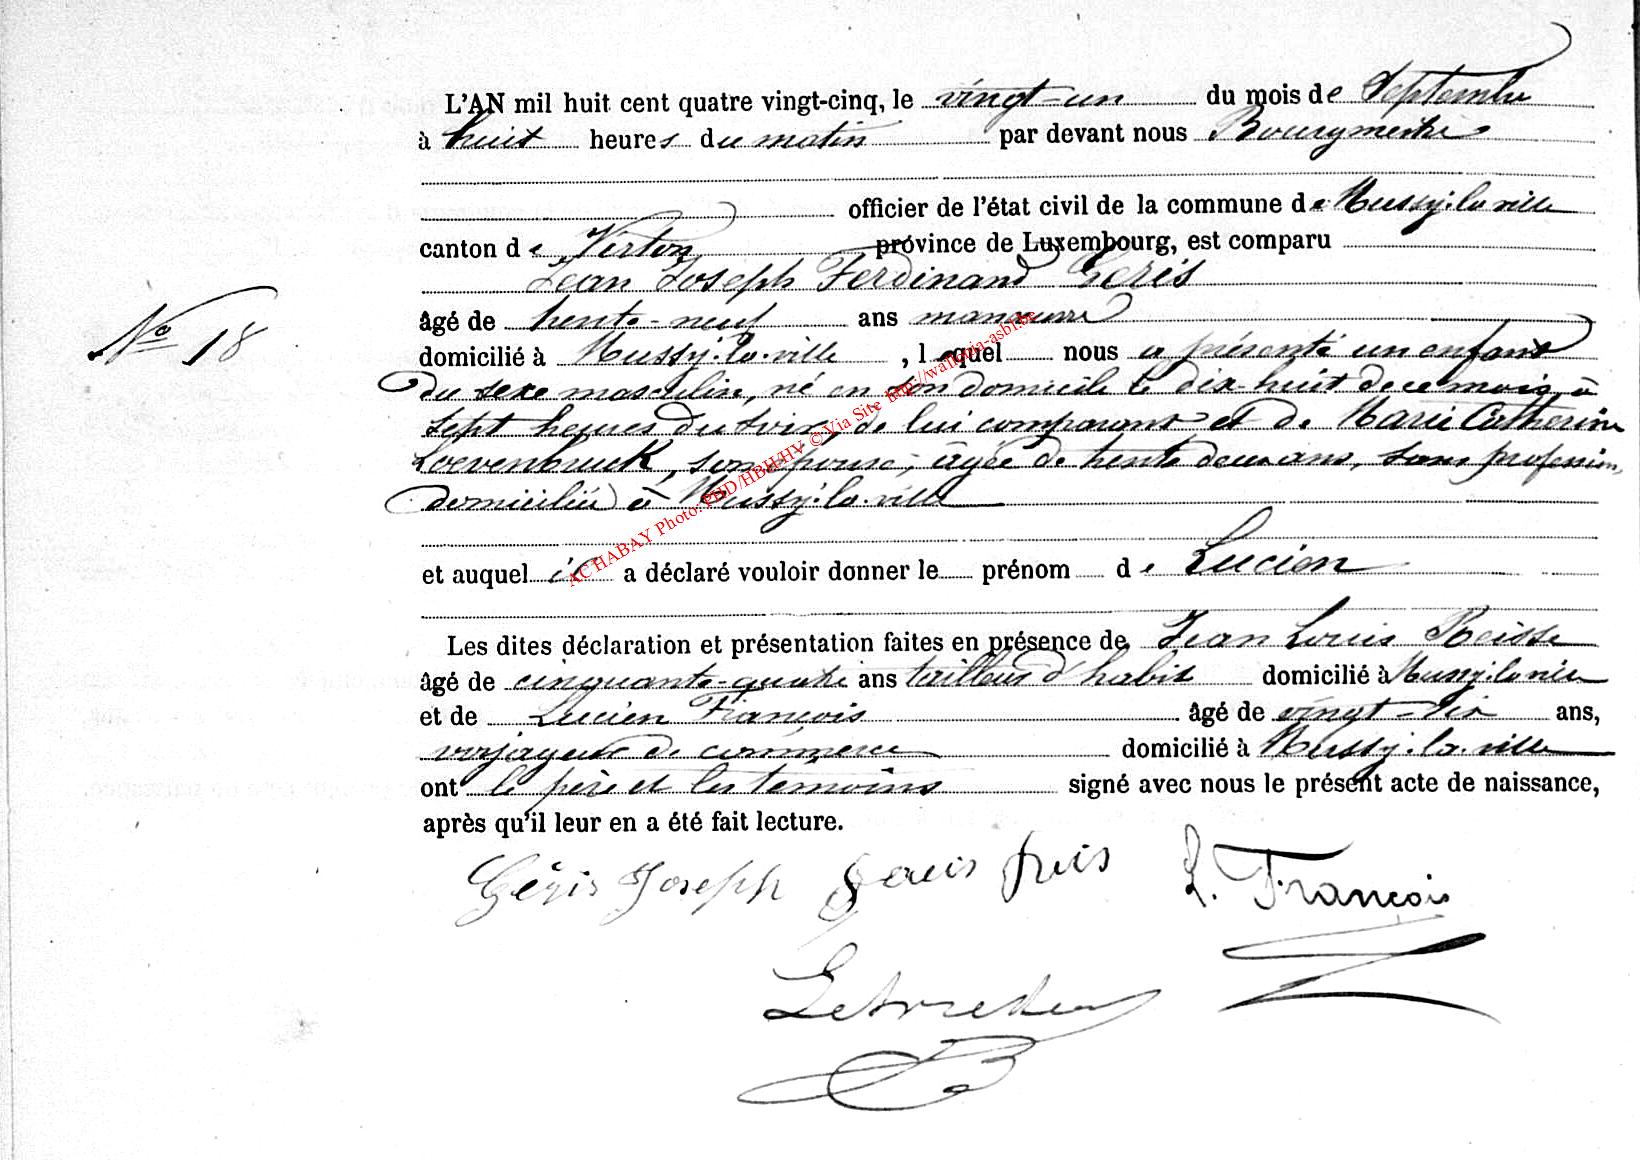 L'AN mil huit cent quatre vingt-cinq, le vingt-un du mois de Septembre
à huit heures du matin par devant nous Bourgmestre
officier de l'état civil de la commune de Mussy-la-ville
canton de Virton province de Luxembourg, est comparu
Jean Joseph Ferdinand Geris
N° 18
âgé de trente-neuf ans manœuvre
domicilié à Mussy-la-ville, lequel nous a présenté un enfant
du sexe masculin, né en son domicile le dix-huit de ce mois à
sept heures du soir, de lui comparant et de Marie Catherine
Loevenbruck, son épouse, âgée de trente deux ans, sans profession,
domiciliée à Mussy-la-ville
et auquel il a déclaré vouloir donner le prénom de Lucien
Les dites déclaration et présentation faites en présence de Jean Louis
âgé de cinquante-quatre ans tailleur d'habit domicilié à Mussy-la-ville
et de Lucien François âgé de vingt-six ans,
voyageur de commerce domicilié à Mussy-la-ville
ont le père et les témoins signé avec nous le présent acte de naissance,
après qu'il leur en a été fait lecture.
Géris Joseph L. François
AC HABAY Photo: PHD/HBH/HV © Via Site http://wallonia-asbl.be